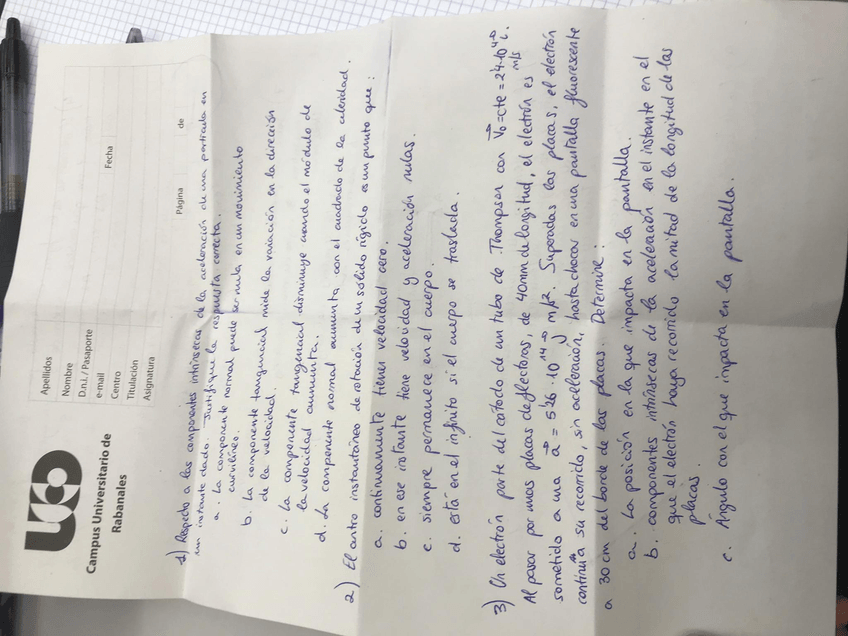 UCO
Campus Universitario de
Rabanales
Apellidos
Nombre
D.n.i. / Pasaporte
e-mail
Centro
Titulación
Asignatura
Fecha
Página de
1) Respecto a las componentes intrínsecas de la aceleración de una partícula en
un instante dado. Justifique la respuesta correcta.
a. La componente normal puede ser nula en un movimiento
curvilíneo.
b. La componente tangencial mide la variación en la dirección
de la velocidad.
c. La componente tangencial disminuye cuando el módulo de
la velocidad aumenta.
d. La componente normal aumenta con el cuadrado de la celeridad.
2) El centro instantáneo de rotación de un sólido rígido es un punto que:
a. continuamente tienes velocidad cero.
b. en ese instante tiene velocidad y aceleración nulas.
c. siempre permanece en el cuerpo.
d. está en el infinito si el cuerpo se traslada.
3) Un electrón parte del cátodo de un tubo de Thompson con V0 = cte = 2'4·10⁴ i
Al pasar por unas placas deflectoras, de 40mm de longitud, el electrón es m/s
sometido a una a = 5'26·10¹⁴ J m/s². Superadas las placas, el electrón
continúa su recorrido, sin aceleración, hasta chocar en una pantalla fluorescente
a 30 cm del borde de las placas. Determine:
a. La posición en la que impacta en la pantalla.
b. componentes intrínsecas de la aceleración en el instante en el
que el electrón haya recorrido la mitad de la longitud de las
placas.
c. Ángulo con el que impacta en la pantalla.